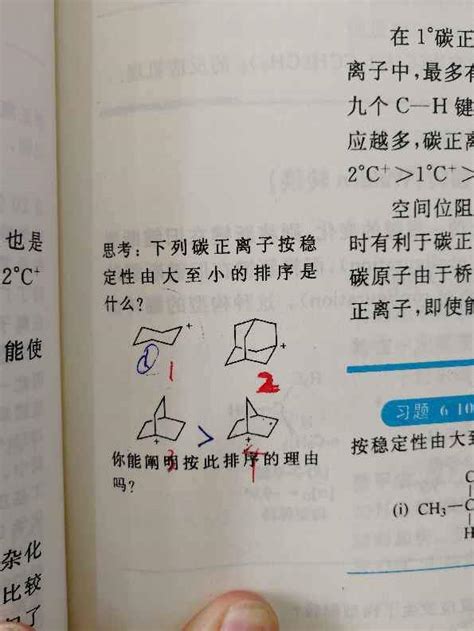 在 1°碳正
离子中,最多有
九个 C—H 键
应越多,碳正离
2°C⁺>1°C⁺>
空间位阻
时有利于碳正
碳原子由于桥
正离子,即使能
也是
2°C⁺
能使
杂化
比较
思考:下列碳正离子按稳
定性由大至小的排序是
什么?
+
+
1
2
+
>
+
3
4
你能阐明按此排序的理由
吗?
习题 6 10
按稳定性由大到
(i) CH₃—C
H